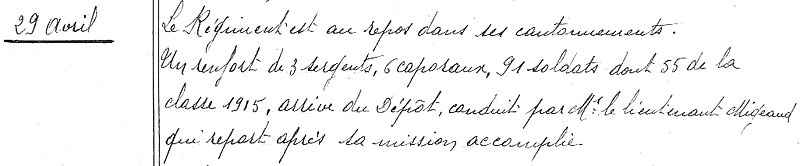 29 Avril
Le Régiment est au repos dans ses cantonnements.
Un renfort de 3 sergents, 6 caporaux, 91 soldats dont 55 de la
classe 1915, arrive du Dépôt, conduit par Mr. le lieutenant Migeaud
qui repart après sa mission accomplie.